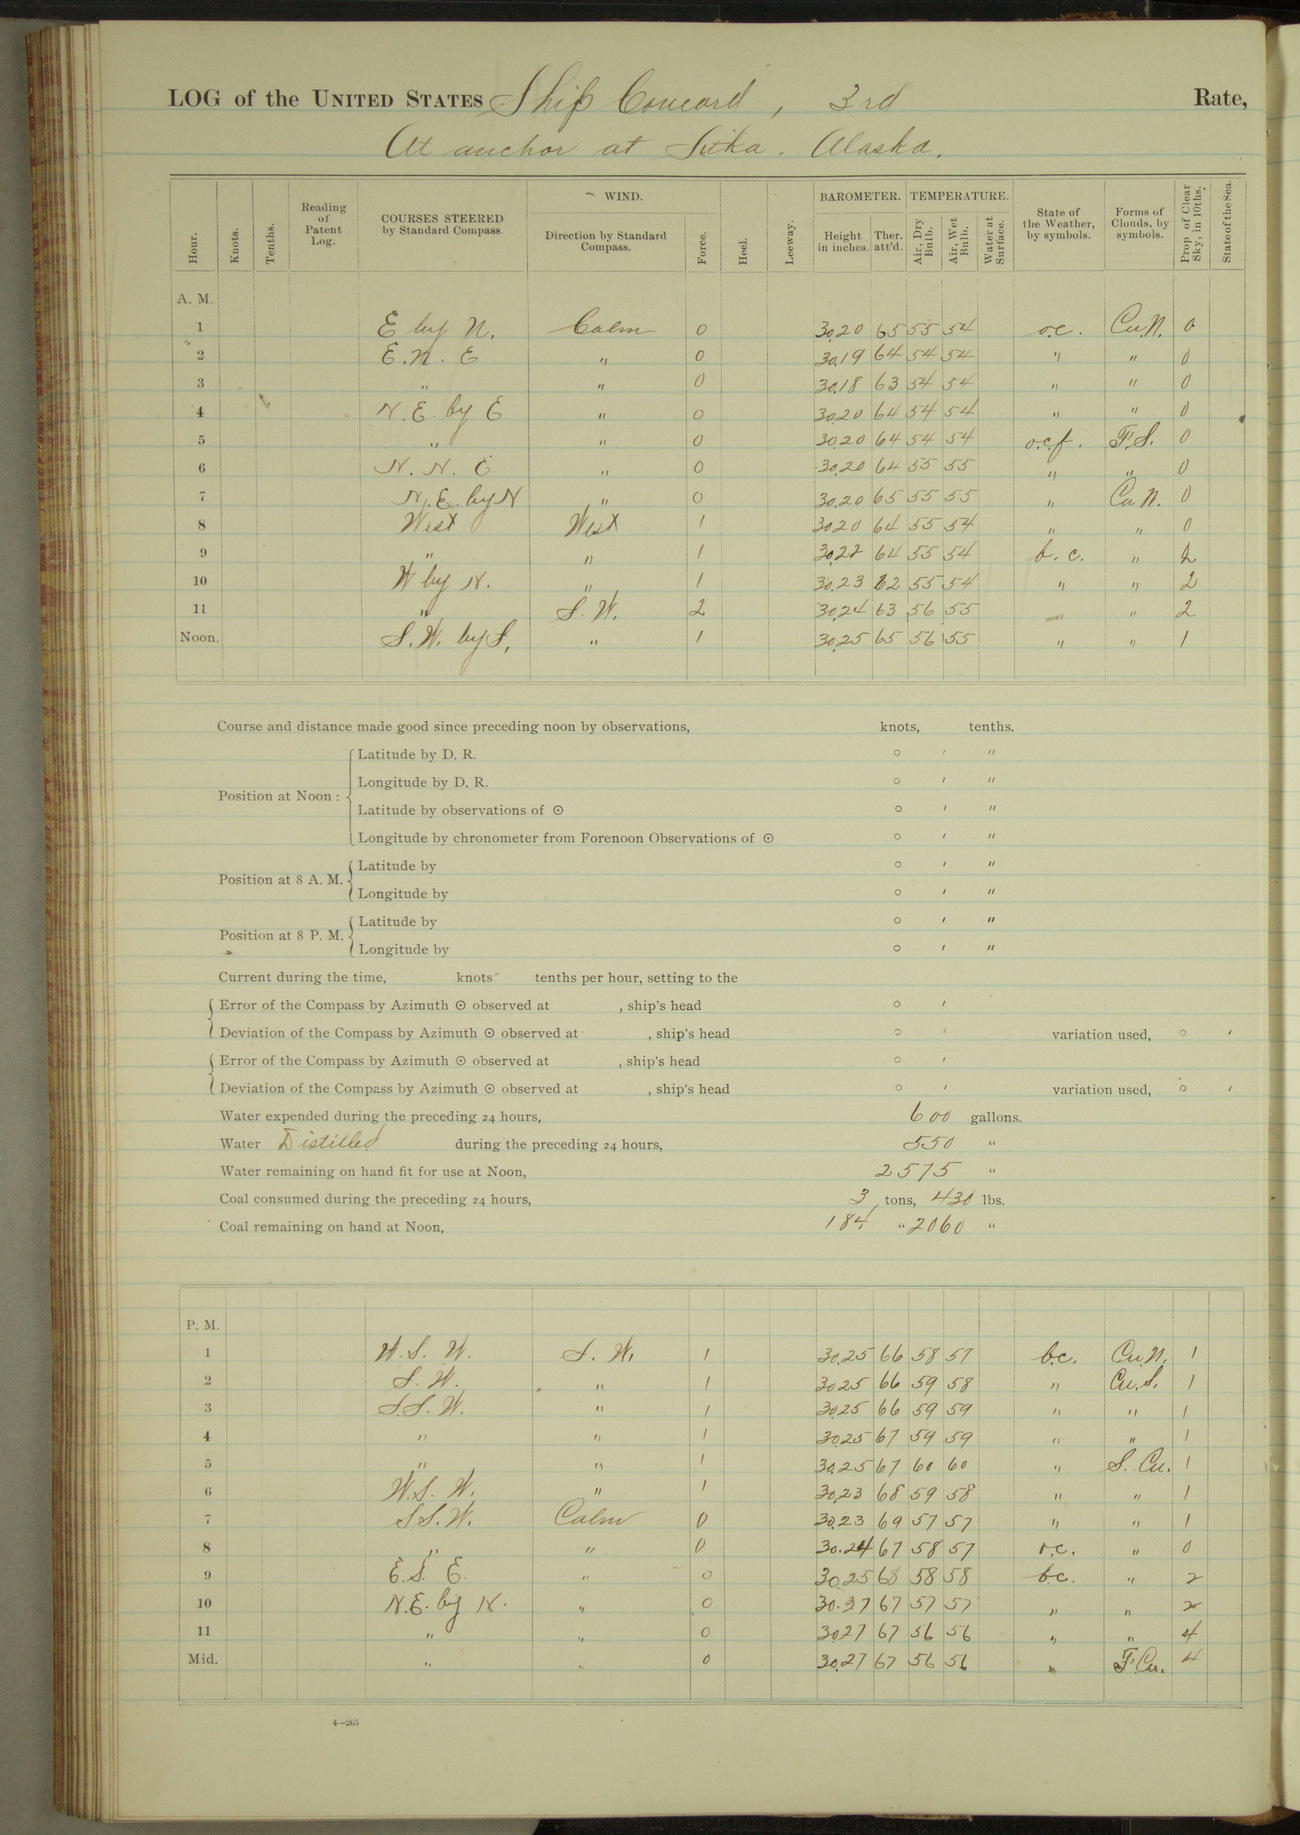 LOG of the UNITED STATES Ship Concord, 3rd Rate,
At anchor at Sitka. Alaska.
Hour. Knots. Tenths. Reading of Patent Log. COURSES STEERED by Standard Compass. WIND. Direction by Standard Compass. Force. Heel. Leeway. BAROMETER. Height in inches. Ther. att'd. TEMPERATURE. Air, Dry Bulb. Air, Wet Bulb. Water at Surface. State of the Weather, by symbols. Forms of Clouds, by symbols. Prop. of Clear Sky, in 10ths. State of the Sea.
A. M.
1 E by N. Calm 0 30.20 65 55 54 o.c. Cu.N. 0
2 E.N.E " 0 30.19 64 54 54 " " 0
3 " " 0 30.18 63 54 54 " " 0
4 N.E. by E " 0 30.20 64 54 54 " " 0
5 " " 0 30.20 64 54 54 o.c.f. F.S. 0
6 N.N.E " 0 30.20 64 55 55 " " 0
7 N.E. by N " 0 30.20 65 55 55 " Cu N. 0
8 West West 1 30.20 64 55 54 " " 0
9 " " 1 30.22 64 55 54 b.c. " 2
10 W by N. " 1 30.23 62 55 54 " " 2
11 " S.W. 2 30.24 63 56 55 " 2
Noon. S.W. by S. " 1 30.25 65 56 55 " " 1
Course and distance made good since preceding noon by observations, knots, tenths.
Position at Noon: Latitude by D. R. ° ' "
Longitude by D. R. ° ' "
Latitude by observations of ☉ ° ' "
Longitude by chronometer from Forenoon Observations of ☉ ° ' "
Position at 8 A. M. Latitude by ° ' "
Longitude by ° ' "
Position at 8 P. M. Latitude by ° ' "
Longitude by ° ' "
Current during the time, knots tenths per hour, setting to the
Error of the Compass by Azimuth ☉ observed at , ship's head ° '
Deviation of the Compass by Azimuth ☉ observed at , ship's head ° ' variation used, ° '
Error of the Compass by Azimuth ☉ observed at , ship's head ° '
Deviation of the Compass by Azimuth ☉ observed at , ship's head ° ' variation used, ° '
Water expended during the preceding 24 hours, 600 gallons.
Water Distilled during the preceding 24 hours, 550 "
Water remaining on hand fit for use at Noon, 2575 "
Coal consumed during the preceding 24 hours, 3 tons, 430 lbs.
Coal remaining on hand at Noon, 184 " 2060 "
P. M.
1 W.S.W. S.W. 1 30.25 66 58 57 b.c. Cu.N. 1
2 S.W. " 1 30.25 66 59 58 " Cu.S. 1
3 S.S.W. " 1 30.25 66 59 59 " " 1
4 " " 1 30.25 67 59 59 " " 1
5 " " 1 30.25 67 60 60 " S. Cu. 1
6 W.S.W. " 1 30.23 68 59 58 " " 1
7 S.S.W. Calm 0 30.23 69 57 57 " " 1
8 " " 0 30.24 67 58 57 o.c. " 0
9 E.S.E. " 0 30.25 68 58 58 b.c. " 2
10 N.E. by N. " 0 30.37 67 57 57 " " 2
11 " " 0 30.27 67 56 56 " " 4
Mid. " " 0 30.27 67 56 56 " F.Cu. 4
4—265